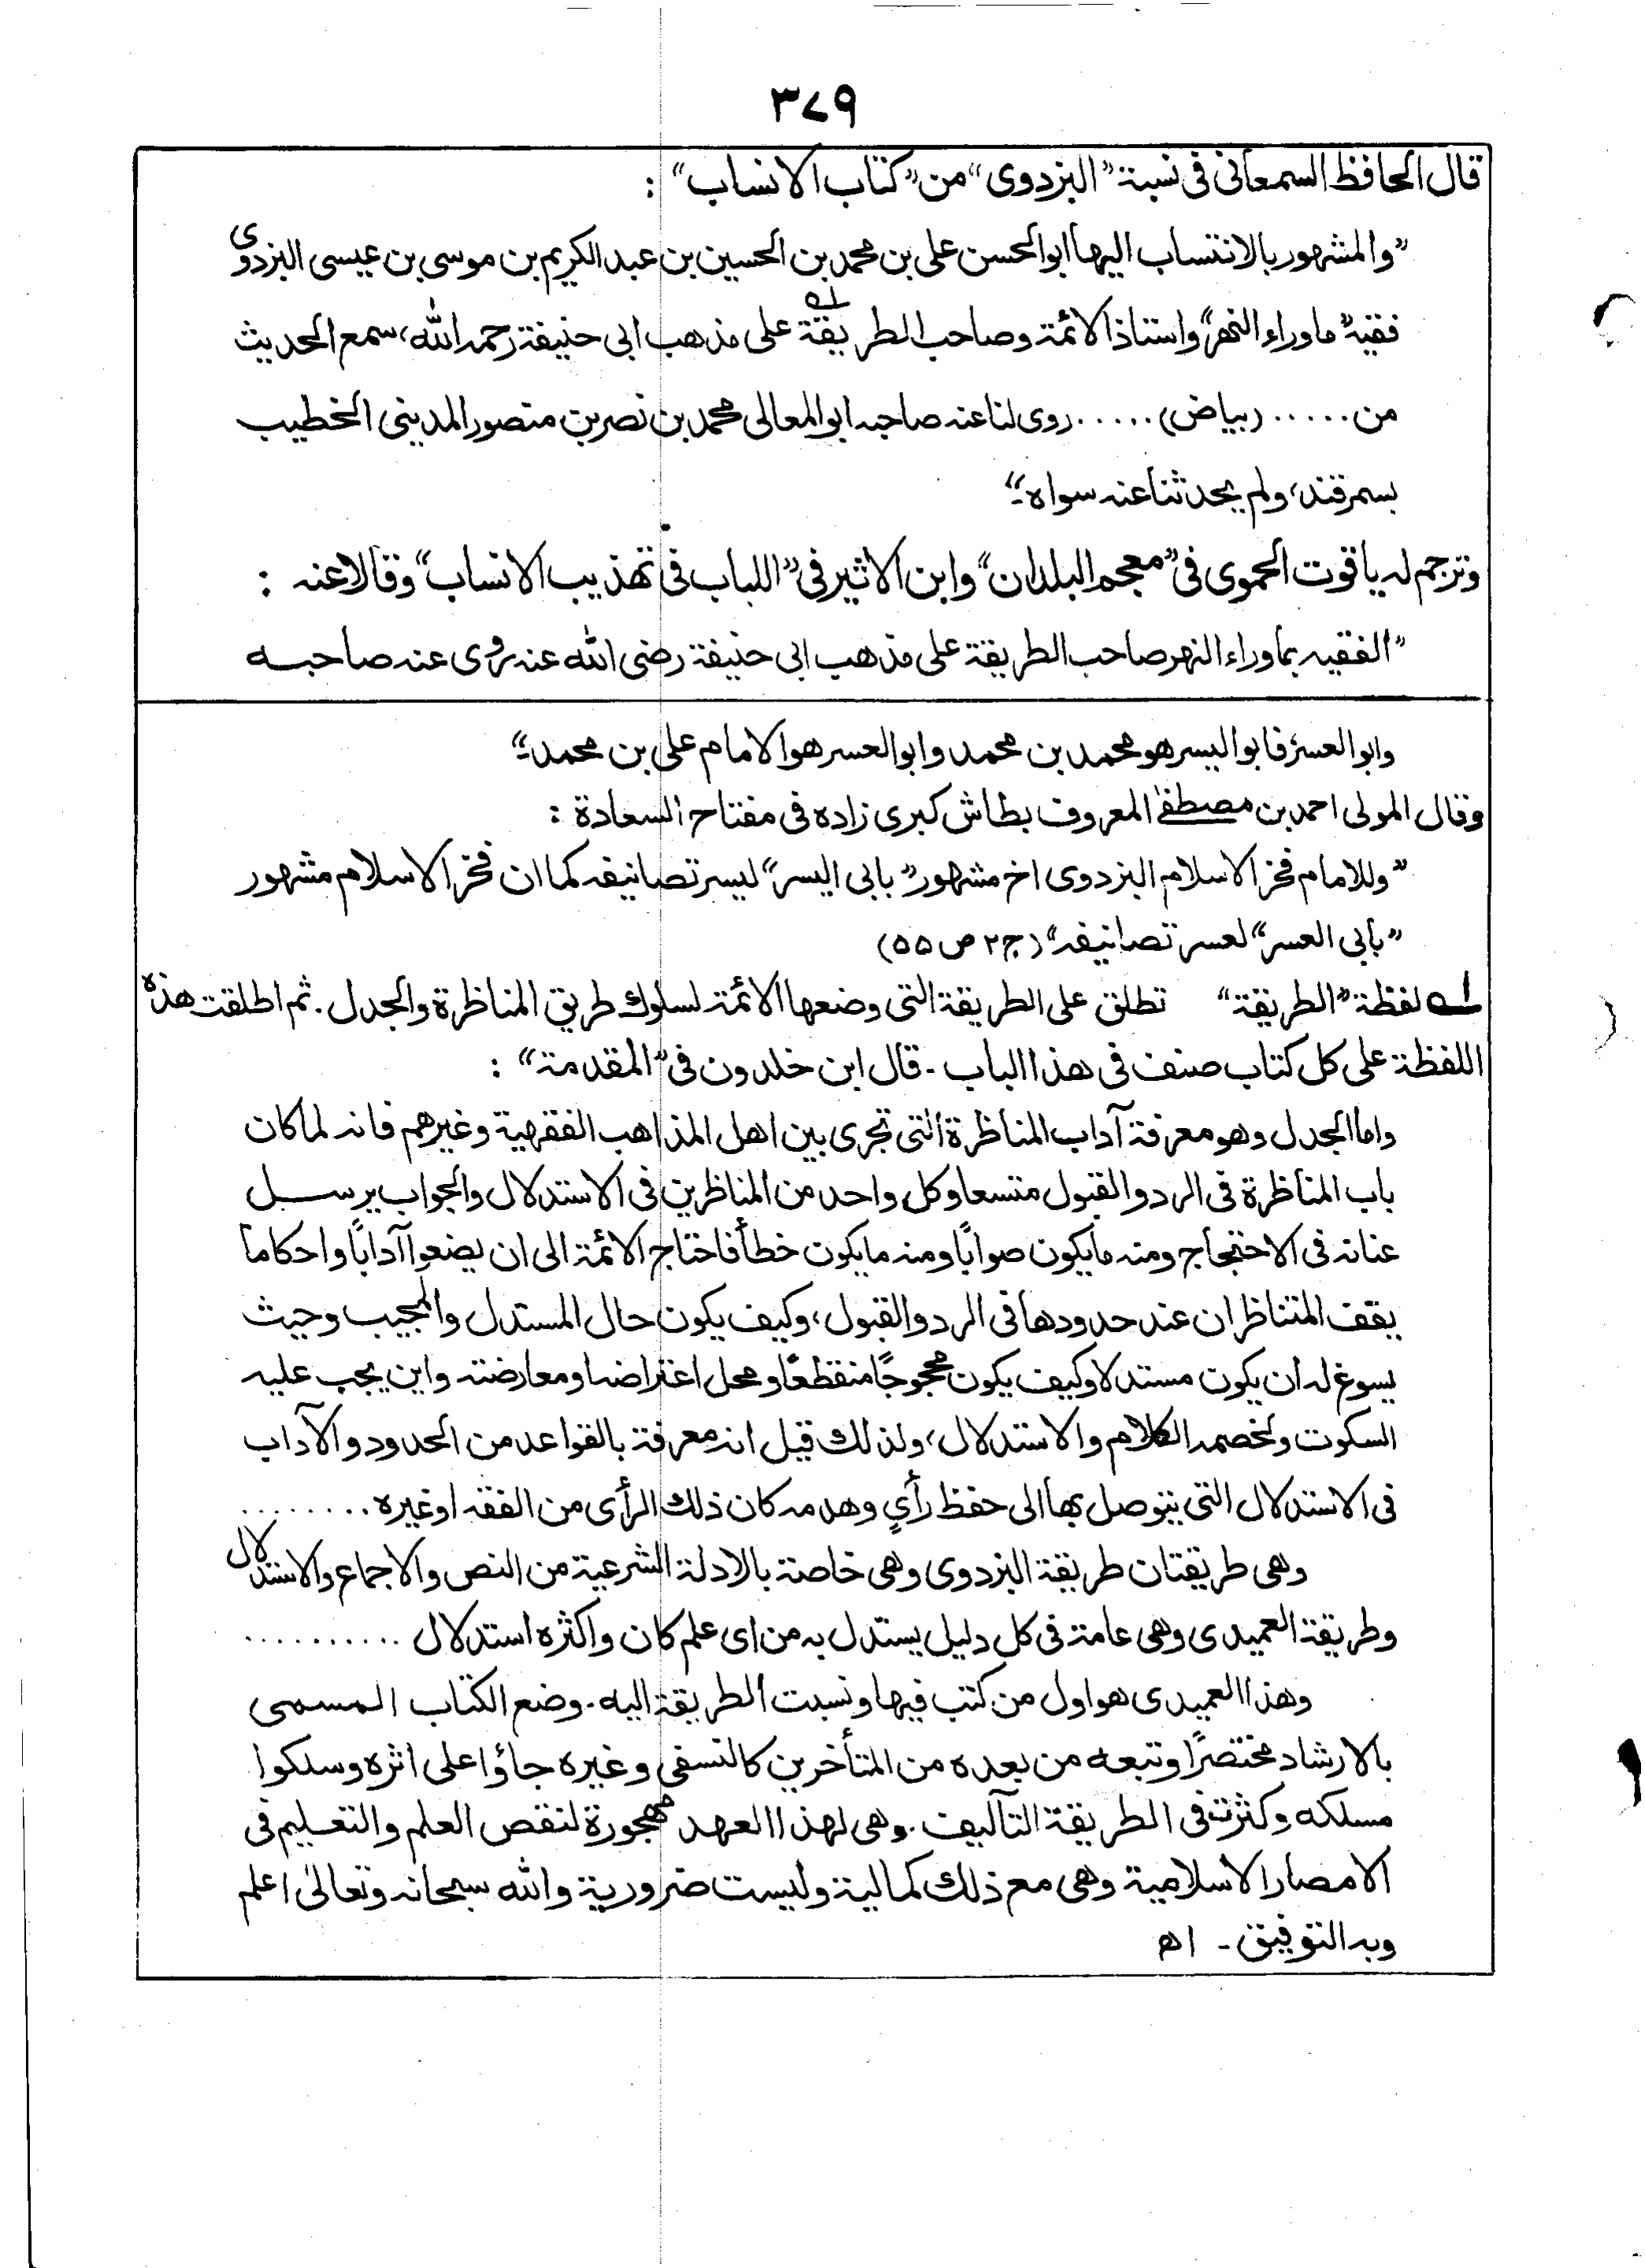 ٣٧٩
قال الحافظ السمعانى فى نسبة "البزدوى" من "كتاب الانساب" :
"والمشهور بالانتساب اليها ابوالحسن على بن محمد بن الحسين بن عبد الكريم بن موسى بن عيسى البزدوى
فقيه "ماوراء النهر" واستاذ الائمة وصاحب الطريقة له على مذهب ابى حنيفة رحمه الله، سمع الحديث
من ..... (بياض) ..... روى لنا عنه صاحبه ابوالمعالى محمد بن نصر بن منصور المدينى الخطيب
بسمرقند، ولم يحدثنا عنه سواه"۔
وترجم له ياقوت الحموى فى "معجم البلدان" وابن الاثير فى "اللباب فى تهذيب الانساب" وقالا عنه :
"الفقيه بماوراء النهر صاحب الطريقة على مذهب ابى حنيفة رضى الله عنه روى عنه صاحبه
وابو العسر، فابو اليسر هو محمد بن محمد وابو العسر هو الامام على بن محمد"۔
وقال المولى احمد بن مصطفىٰ المعروف بطاش كبرى زاده فى مفتاح السعادة :
"وللامام فخر الاسلام البزدوى اخ مشهور "بابى اليسر" ليسر تصانيفه كما ان فخر الاسلام مشهور
"بابى العسر" لعسر تصانيفه" (ج ٢ ص ٥٥)
له لفظة "الطريقة" تطلق على الطريقة التى وضعها الائمة لسلوك طريق المناظرة والجدل. ثم اطلقت هذه
اللفظة على كل كتاب صنف فى هذا الباب - قال ابن خلدون فى "المقدمة" :
واما الجدل وهو معرفة آداب المناظرة التى تجرى بين اهل المذاهب الفقهية وغيرهم فانه لما كان
باب المناظرة فى الرد والقبول متسعا وكل واحد من المناظرين فى الاستدلال والجواب يرسل
عنانه فى الاحتجاج ومنه مايكون صوابًا ومنه مايكون خطأً فاحتاج الائمة الى ان يضعوا آدابًا واحكاماً
يقف المتناظران عند حدودها فى الرد والقبول، وكيف يكون حال المستدل والمجيب وحيث
يسوغ له ان يكون مستدلا وكيف يكون محجوجًا منقطعًا ومحل اعتراضه او معارضته واين يجب عليه
السكوت ولخصمه الكلام والاستدلال، ولذلك قيل انه معرفة بالقواعد من الحدود والآداب
فى الاستدلال التى يتوصل بها الى حفظ رأي وهدمه كان ذلك الرأى من الفقه اوغيره ........
وهى طريقتان طريقة البزدوى وهى خاصة بالادلة الشرعية من النص والاجماع والاستدلال
وطريقة العميدى وهى عامة فى كل دليل يستدل به من اى علم كان واكثره استدلال ..........
وهذا العميدى هو اول من كتب فيها ونسبت الطريقة اليه - وضع الكتاب المسمى
بالارشاد مختصرًا وتبعه من بعده من المتأخرين كالنسفى وغيره جاؤا على اثره وسلكوا
مسلكه وكثرت فى الطريقة التآليف . وهى لهذا العهد مهجورة لنقص العلم والتعليم فى
الامصار الاسلامية وهى مع ذلك كمالية وليست ضرورية والله سبحانه وتعالىٰ اعلم
وبه التوفيق - اھ